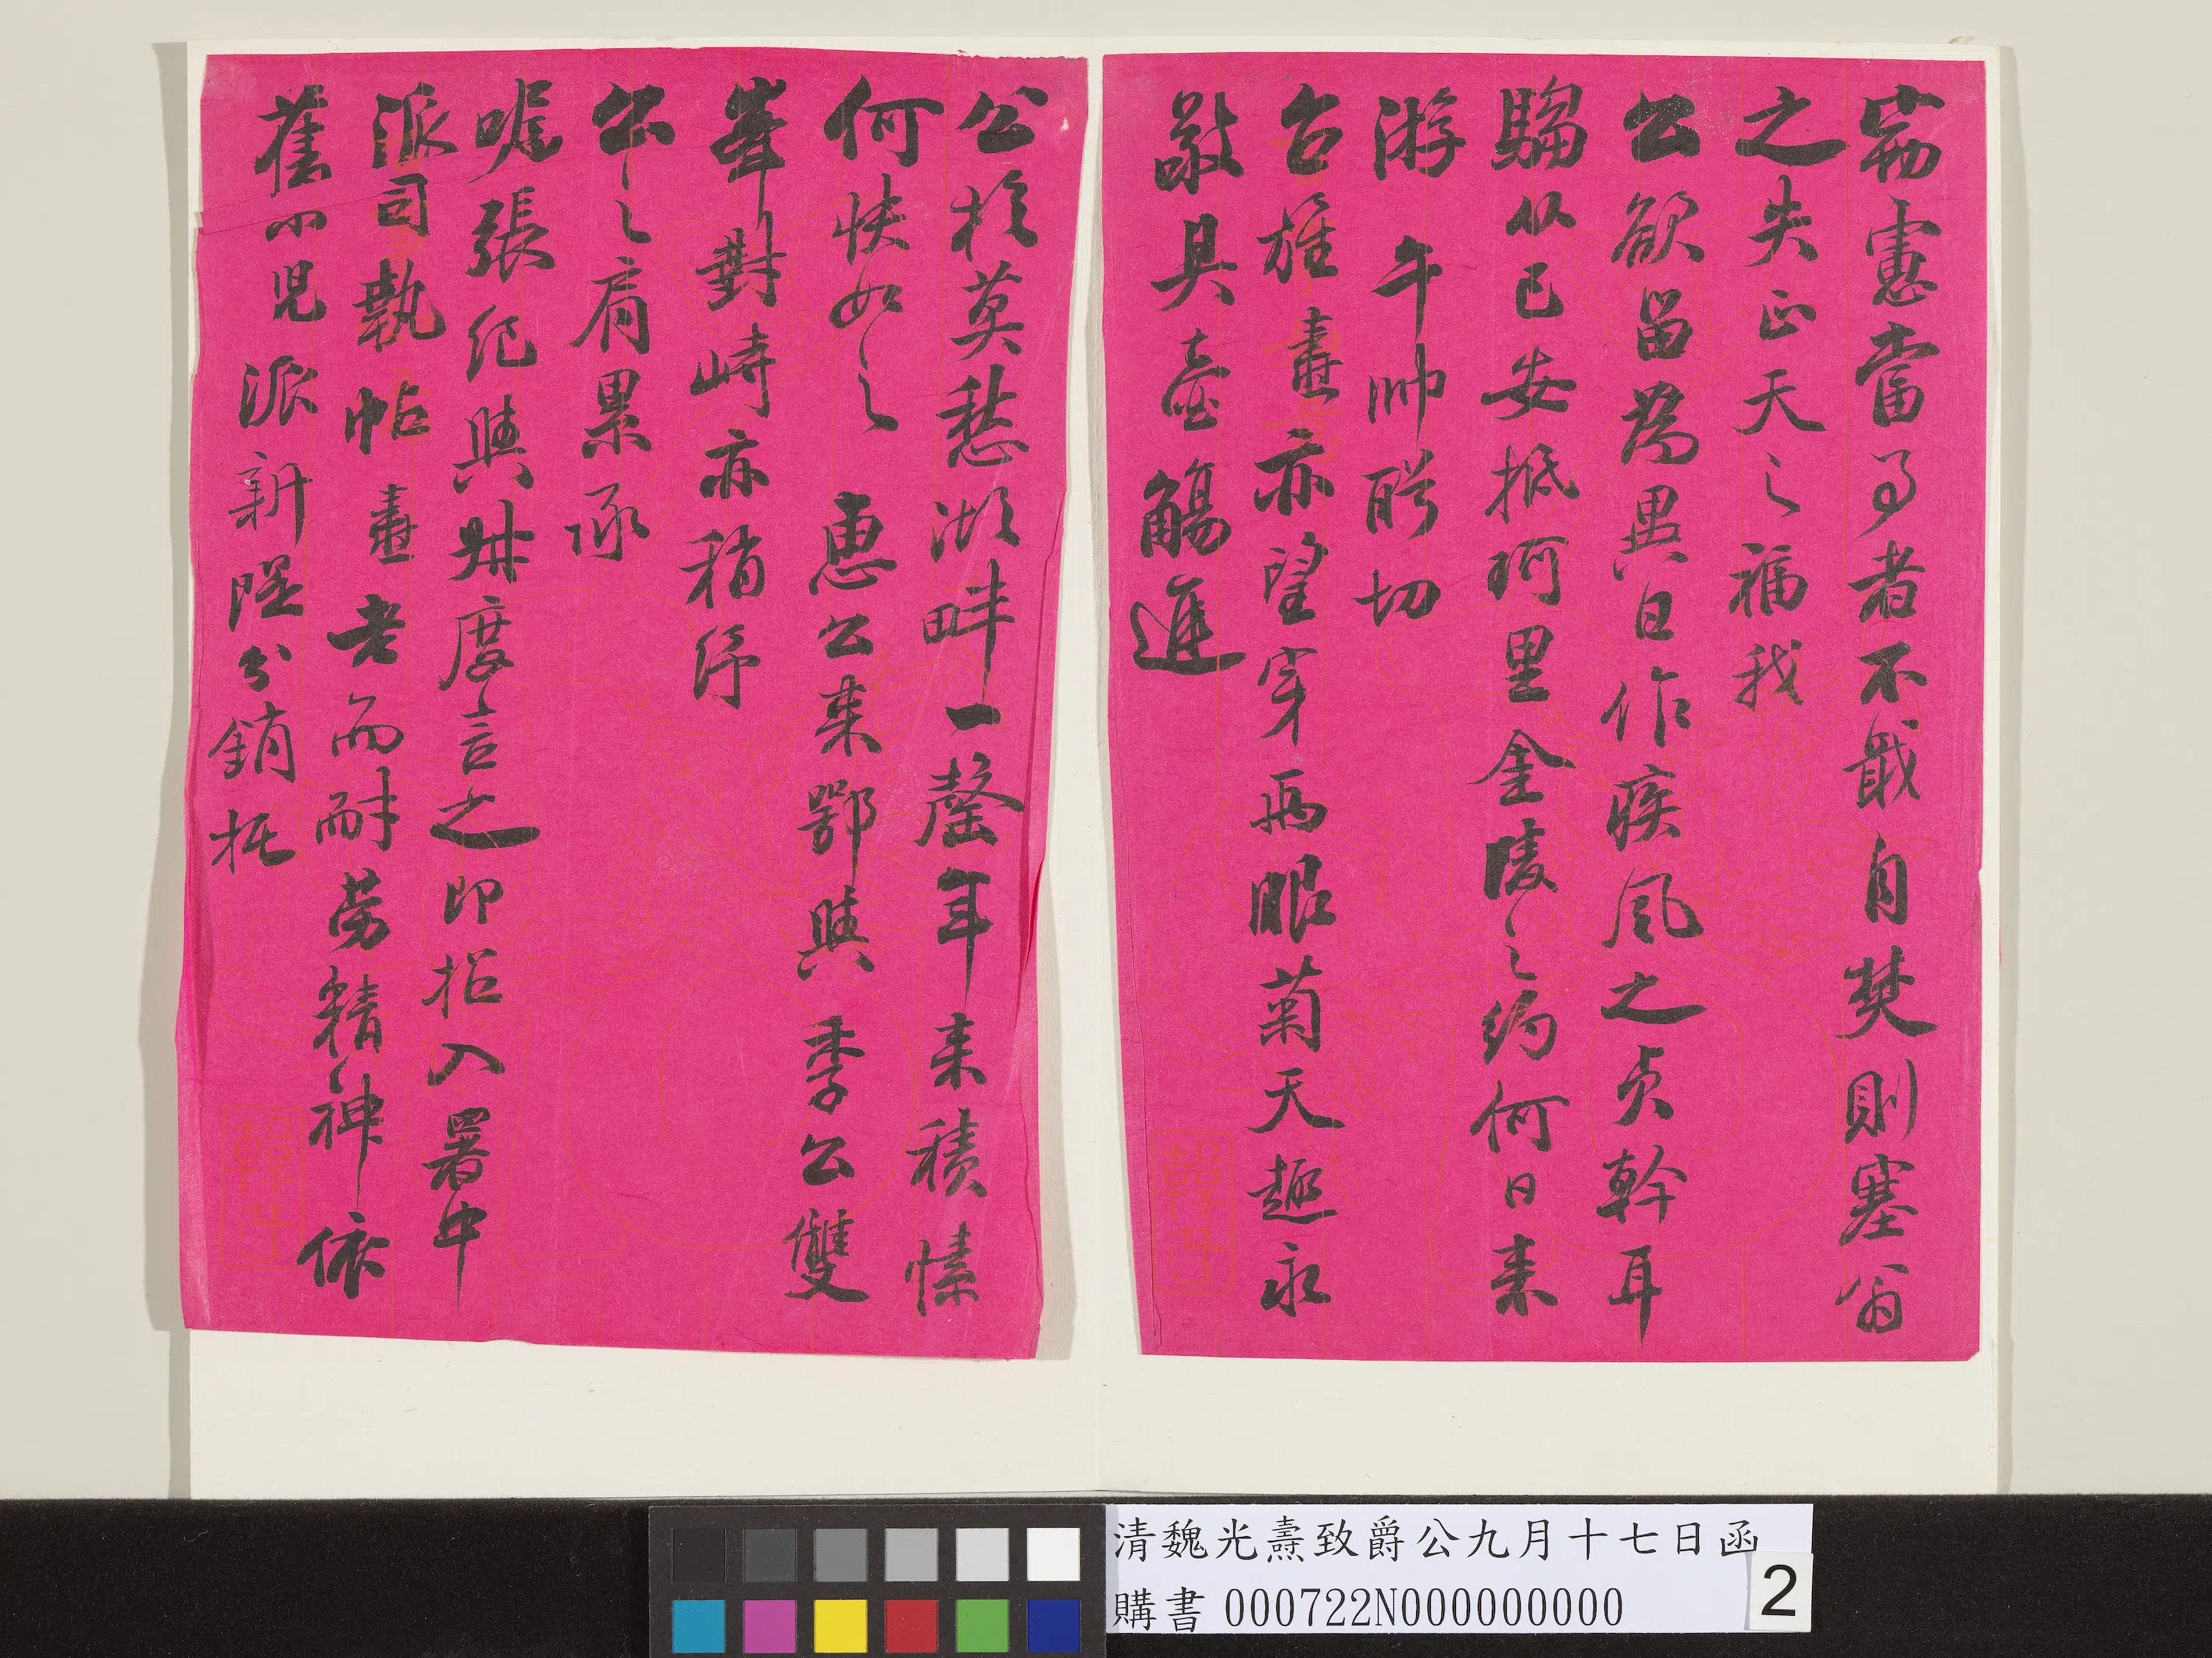 窮憲當事者不戢自焚則塞翁
之失正天之福我
公欲留為異日作疾風之貞幹耳
騶從已安抵珂里金陵之約何日來
游午帥盼切
台旌畫亦望穿兩眼菊天趣永
敬具壺觴進
公於莫愁湖畔一罄年來積愫
何快如之 惠公來鄂與季公雙
峯對峙亦稍紓
公之肩累承
嘱張紀與叔度言之即招入署中
派司執帖畫老而耐勞精神依
舊小兒派新隄分銷抵
清魏光燾致爵公九月十七日函
購書 000722N000000000
2